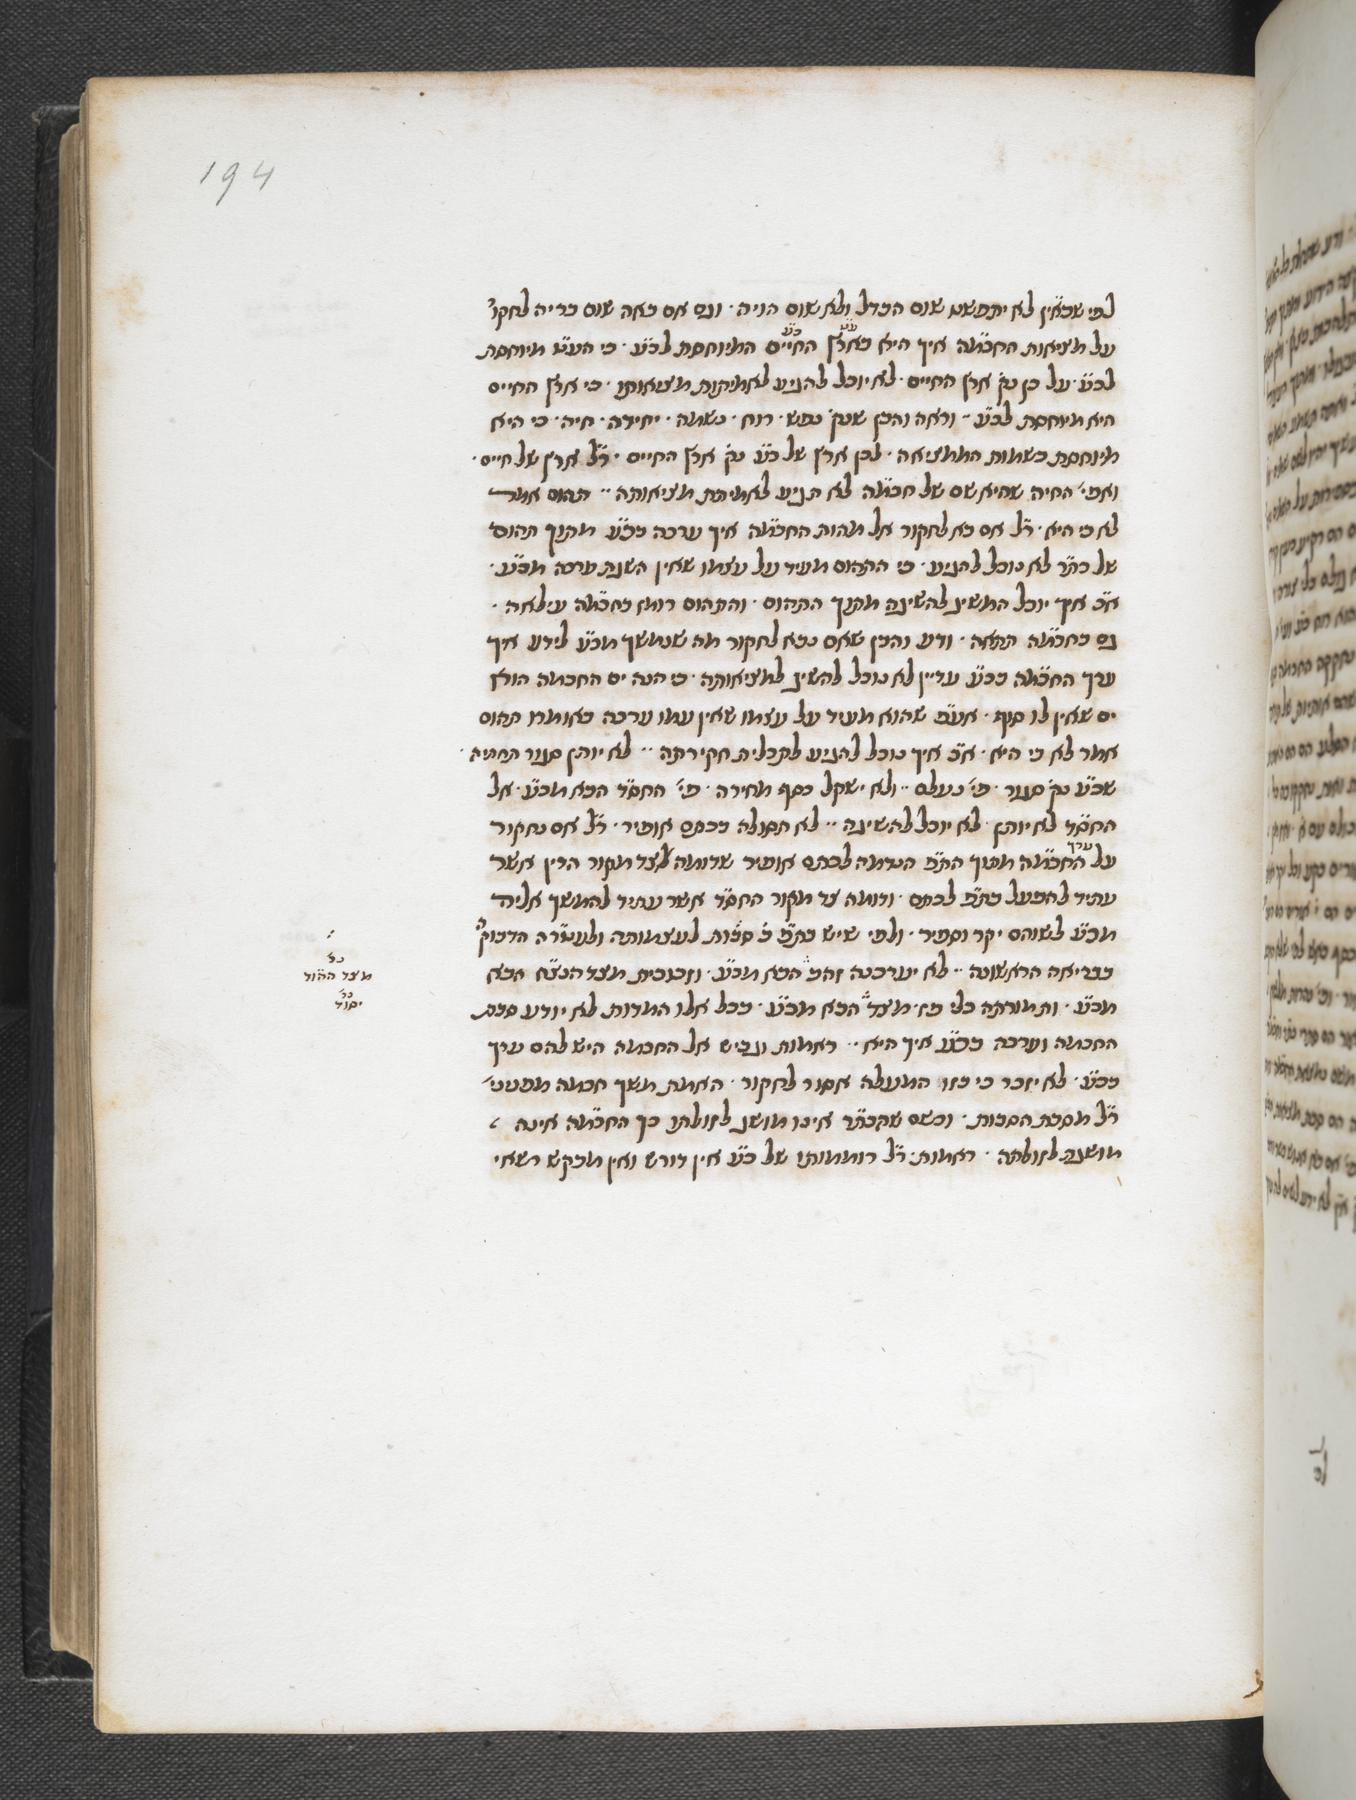 194
לפי שבאין לא יתפשט שום הבדל ולא שום הויה · וגם אם באה שום בריה לחקו׳
על מציאות החכמה איך היא בארץ החיים המיוחסת לכ״ע · כי העט מיוחסת
לכ״ע · על כן נק׳ ארץ החיים · לא יוכל להגיע לאמיתות מציאותו · כי ארץ החיים
היא מיוחסת לכ״ע ·· וראה והבן שנק׳ נפש · רוח · נשמה · יחידה · חיה · כי היא
מיוחסת בשמות הממציאה · לכן ארץ של כ״ע נק׳ ארץ החיים · ר״ל ארץ של חיים ·
ואפי׳ החיה שהיא שם של חכמה לא תגיע לאמיתת מציאותה ·· תהום אמר
לא בי היא · ר״ל אם בא לחקור אל מהות החכמה איך ערכה בכ״ע מתוך תהום
של כתר לא נוכל להגיע · כי התהום מעיד על עצמו שאין השגת ערכה מכ״ע ·
א״כ איך יוכל המשיג להשיגה מתוך התהום · והתהום רומז בחכמה עילאה ·
גם בחכמה תתאה · ודע והבן שאם נבא לחקור מה שנמשך מכ״ע לידע איך
ערך החכמה בכ״ע עדיין לא נוכל להשיג למציאותה · כי הנה ים החכמה הוא
ים שאין לו סוף · אע״פ שהוא מעיד על עצמו שאין עמו ערכה באומרו תהום
אמר לא בי היא · א״כ איך נוכל להגיע לתכלית חקירתה ·· לא יותן סגור תחתיה ·
שכ״ע נק׳ סגור · פי׳ נעלם ·· ולא ישקל כסף מחירה · פי׳ החסד הבא מכ״ע · אל
החסד לא יותן · לא יוכל להשיגה ·· לא תסולה בכתם אופיר · ר״ל אם נחקור
על ערך החכמה מתוך הת״פ הנדמה לכתם אופיר שדומה לצד מקור הדין אשר
עתיד להפעל בת״פ לכתם · ודומה צד מקור החסד אשר עתיד להמשך אליה
מכ״ע לשוהם יקר וספיר · ולפי שיש בת״פ ב׳ סבות לעצמותה ולעטרה הדבוק׳
בבריאה הראשונה ·· לא יערכנה זהב הבא מכ״ע · וזכוכית מצד הנצח הבא
מכ״ע · ותמורתה כלי פז · מצד הבא מכ״ע · בכל אלו המדות לא יודע סבת
החכמה וערכה בכ״ע איך היא ·· ראמות וגביש אל החכמה היש להם ערך
בכ״ע · לא יזכר כי בזו המעלה אסור לחקור · האמת משך חכמה מפנינ׳
ר״ל מסבת הסבות · וכשם שהכתר אינו מושג לזולתו כך החכמה אינה
מושגת לזולתה · ראמות · ר״ל רוממותו של כ״ע אין דורש ואין מבקש רשאי
מצד ההוד
יסוד